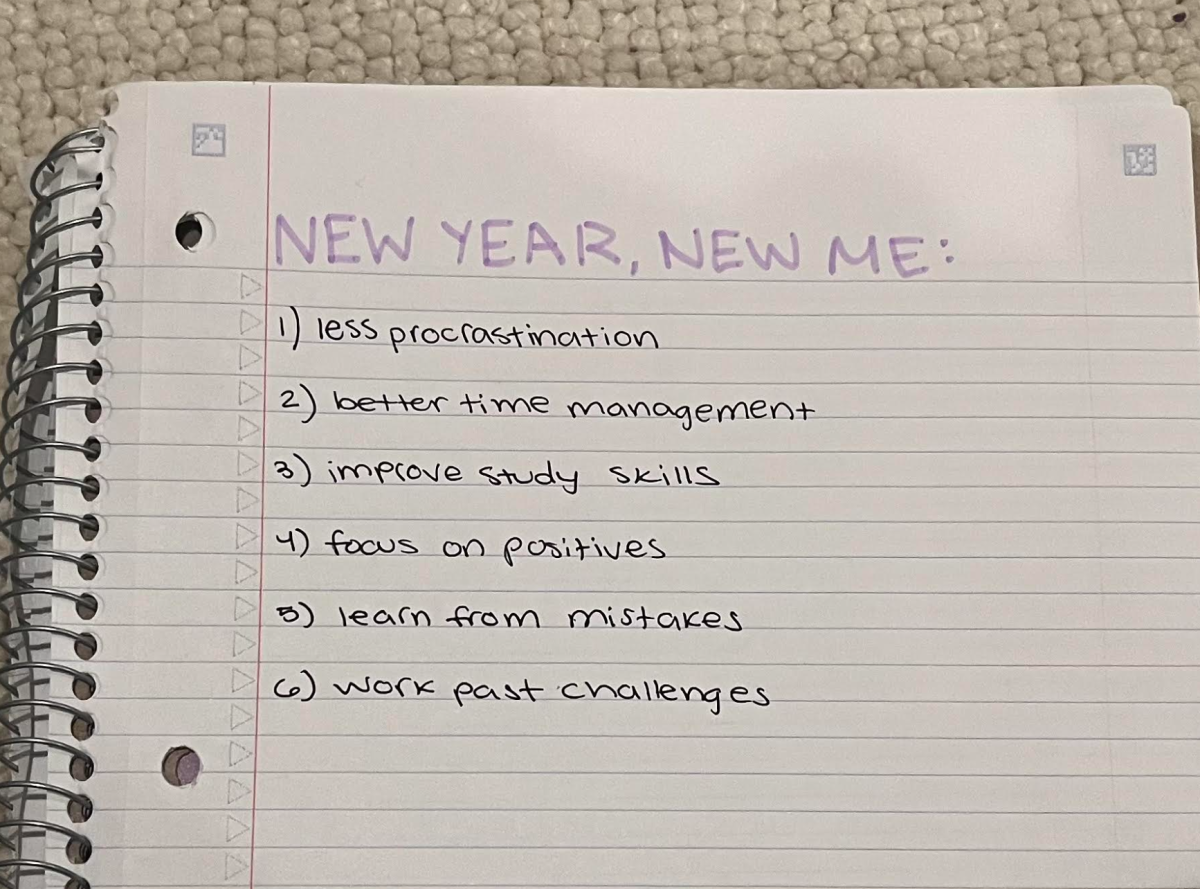 NEW YEAR, NEW ME:
1) less procrastination
2) better time management
3) improve study skills
4) focus on positives
5) learn from mistakes
6) work past challenges